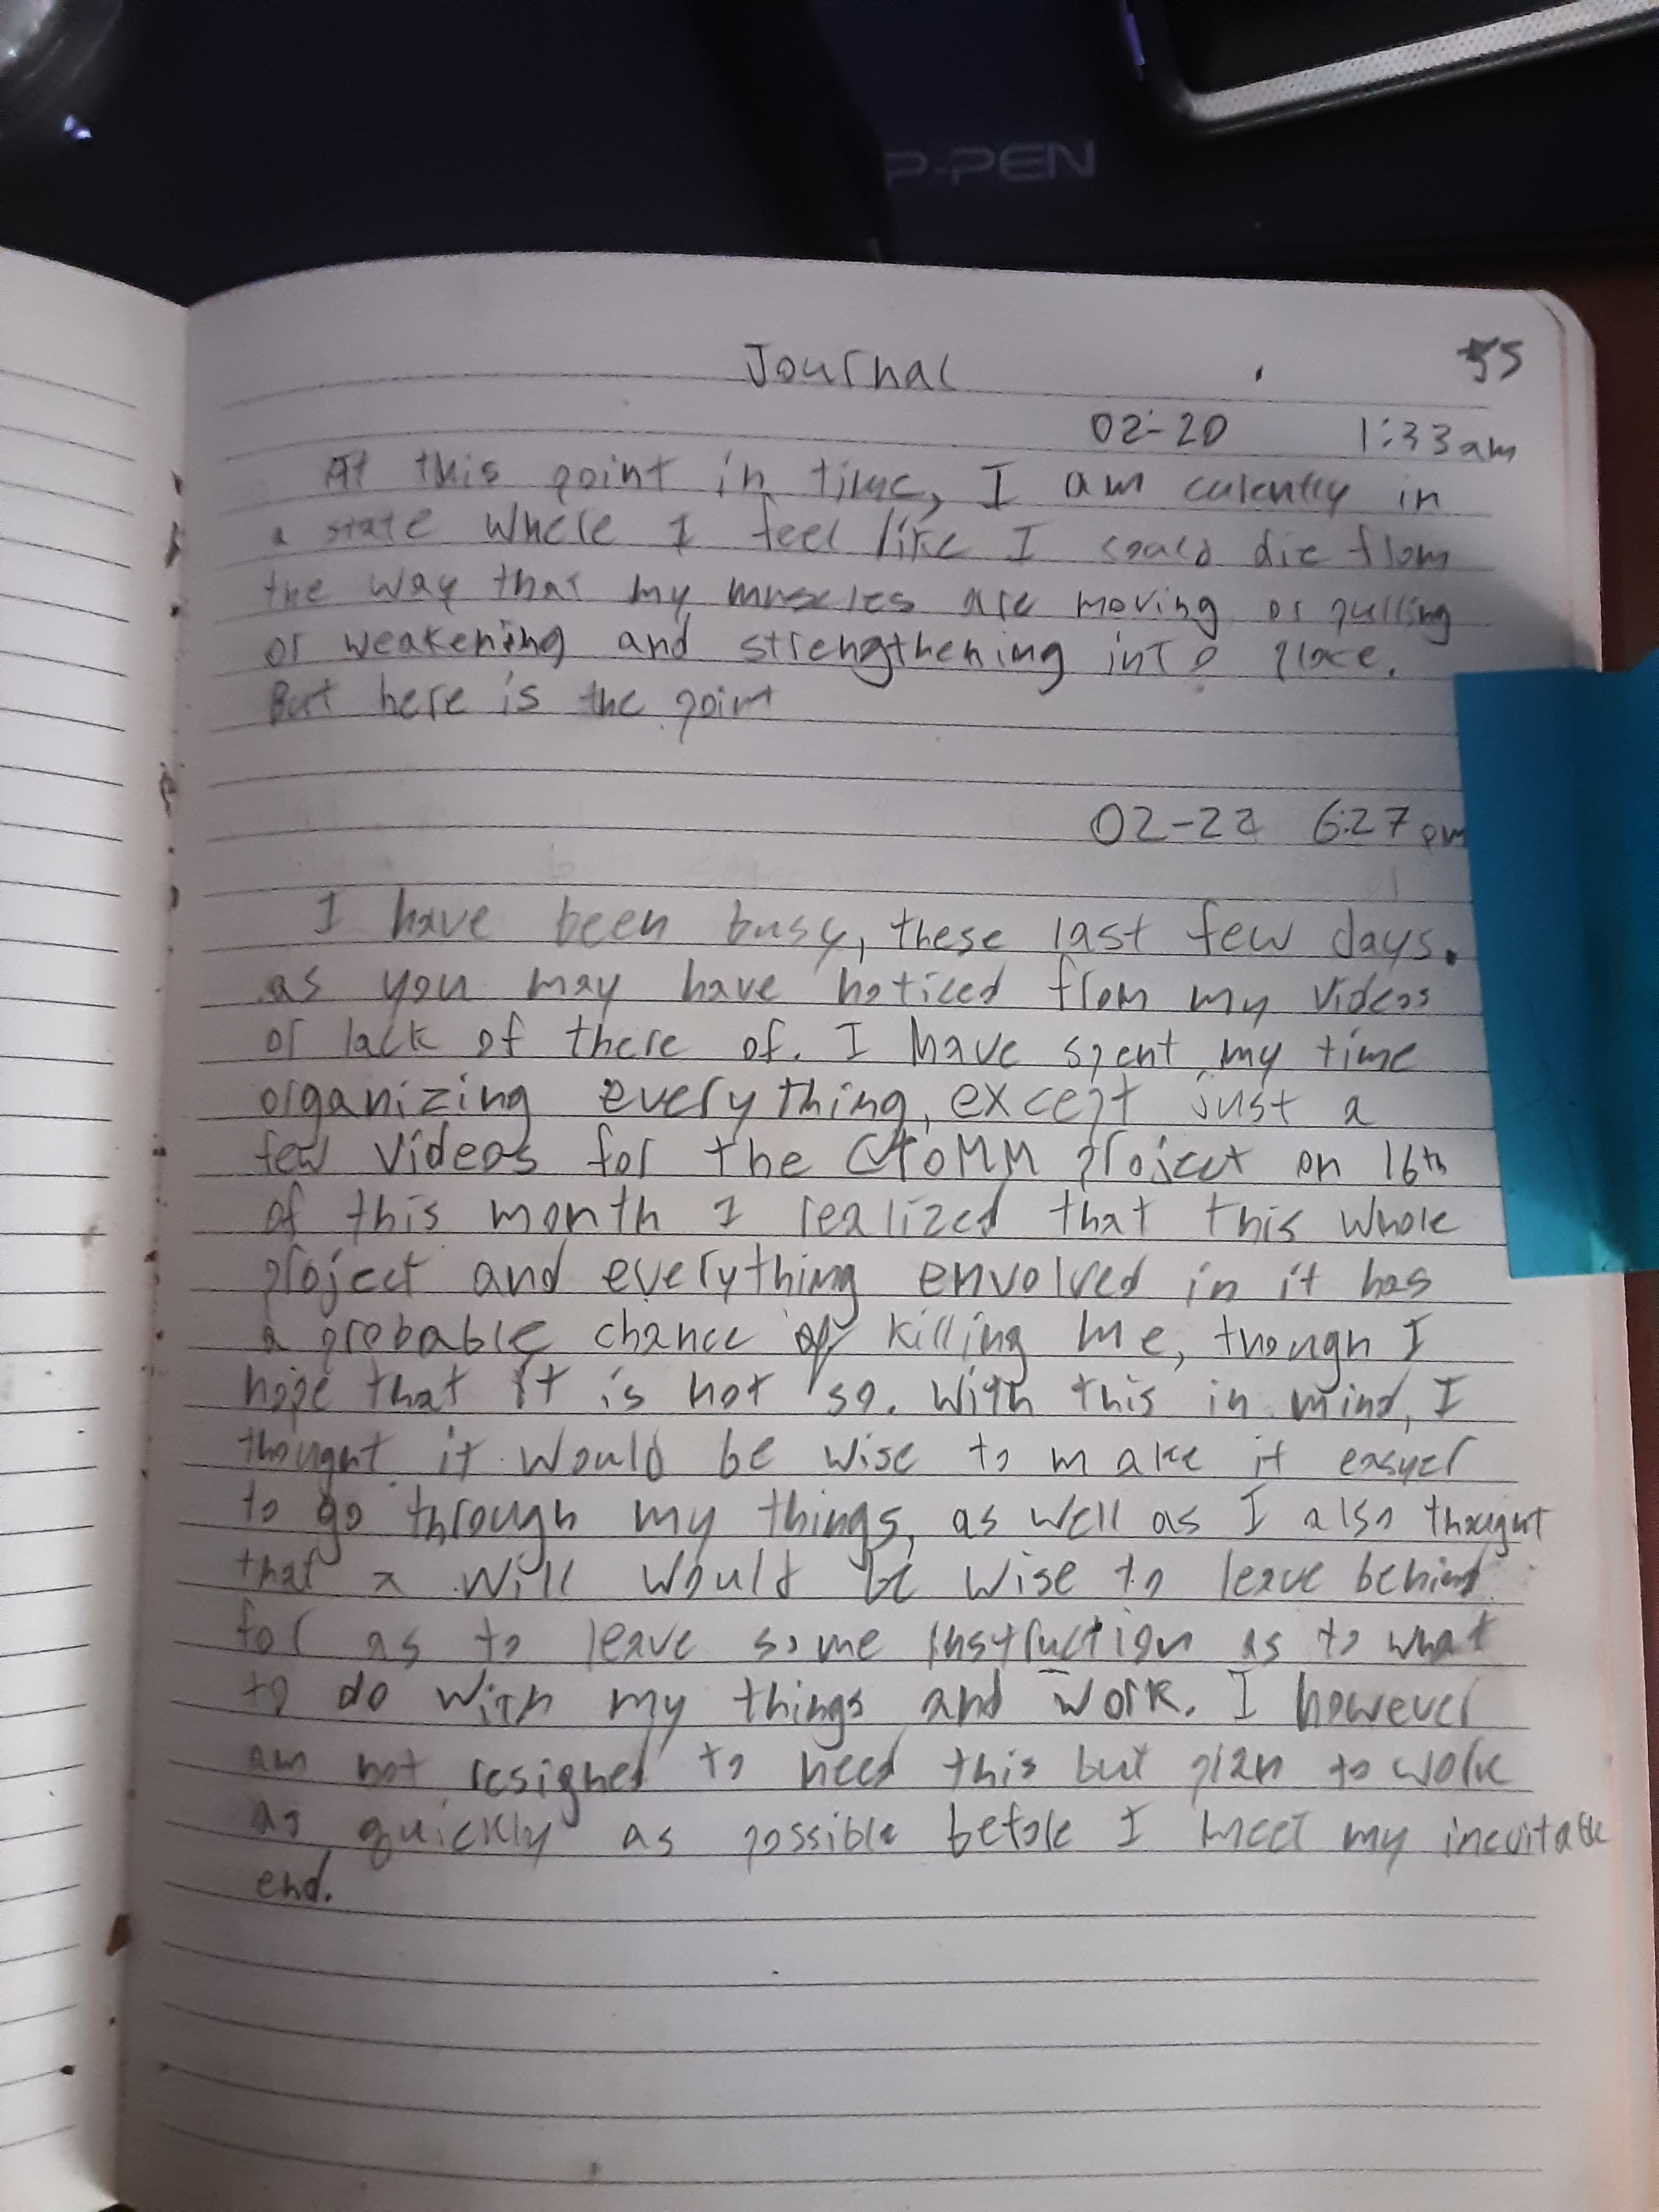 P-PEN
Journal
55
02-20 1:33am
At this point in time, I am curently in
a state where I feel like I could die from
the way that my muscles are moving or pulling
or weakening and strengthening into place.
But here is the point
02-22 6:27 pm
I have been busy, these last few days.
as you may have noticed from my videos
or lack of there of. I have spent my time
organizing everything, except just a
few videos for the project on 16th
of this month I realized that this whole
project and everything envolved in it has
a probable chance of killing me, though I
hope that it is not so. With this in mind, I
thought it would be wise to make it easyer
to go through my things, as well as I also thought
that a will would be wise to leave behind
for as to leave some instruction as to what
to do with my things and work. I however
am not resigned to need this but plan to work
as quickly as possible before I meet my inevitable
end.